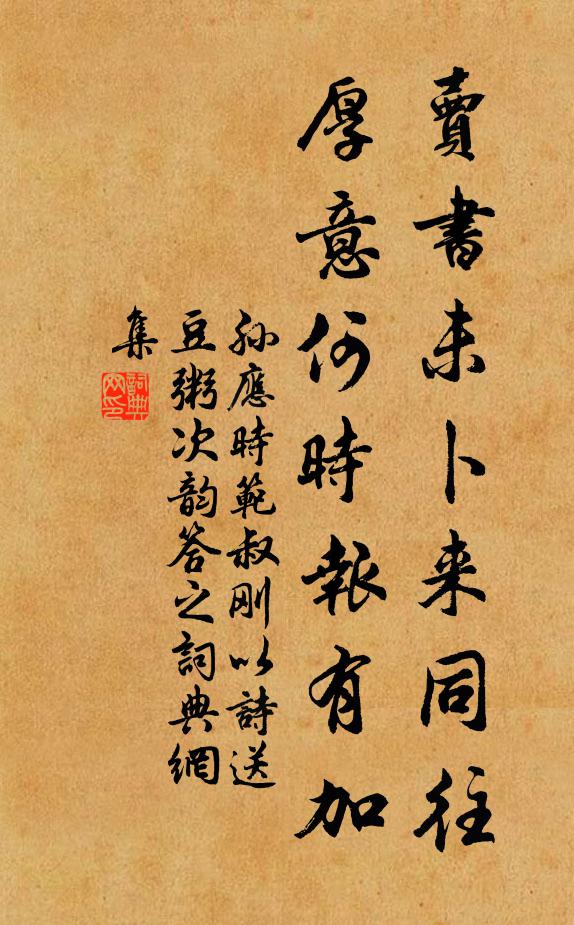 賣書未卜来同往
厚意何時報有加
孫應時範叔刚以詩送
豆粥次韵答之詞典網
集
詞典網印